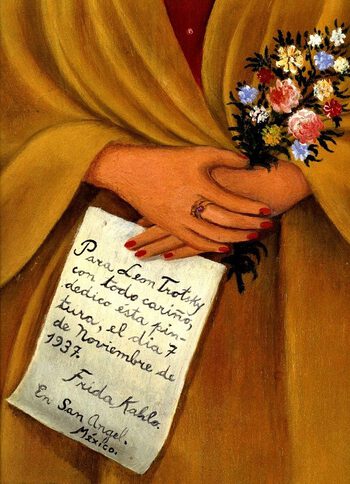 Para Leon Trotsky
con todo cariño,
dedico ésta pin-
tura, el día 7
de Noviembre de
1937.
Frida Kahlo.
En San Angel.
México.